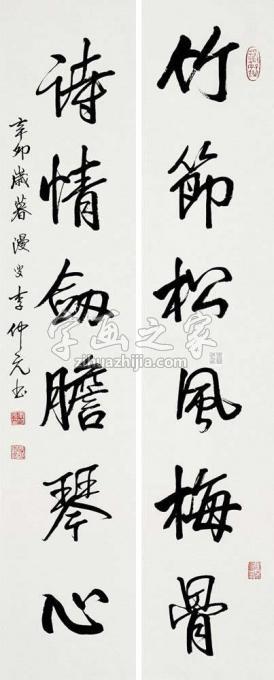 竹節松風梅骨
詩情劍膽琴心
辛卯歲暮漫叟李仲元书
字画之家
zihuazhijia.com